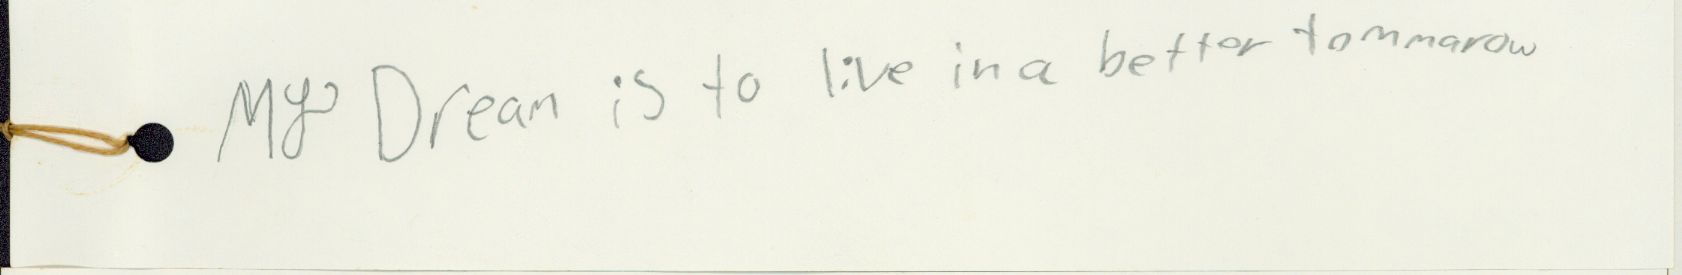 My Dream is to live in a better tommarow